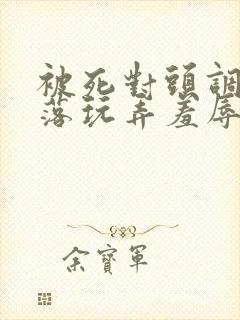 被死對頭調
落玩弄羞辱
余寶軍